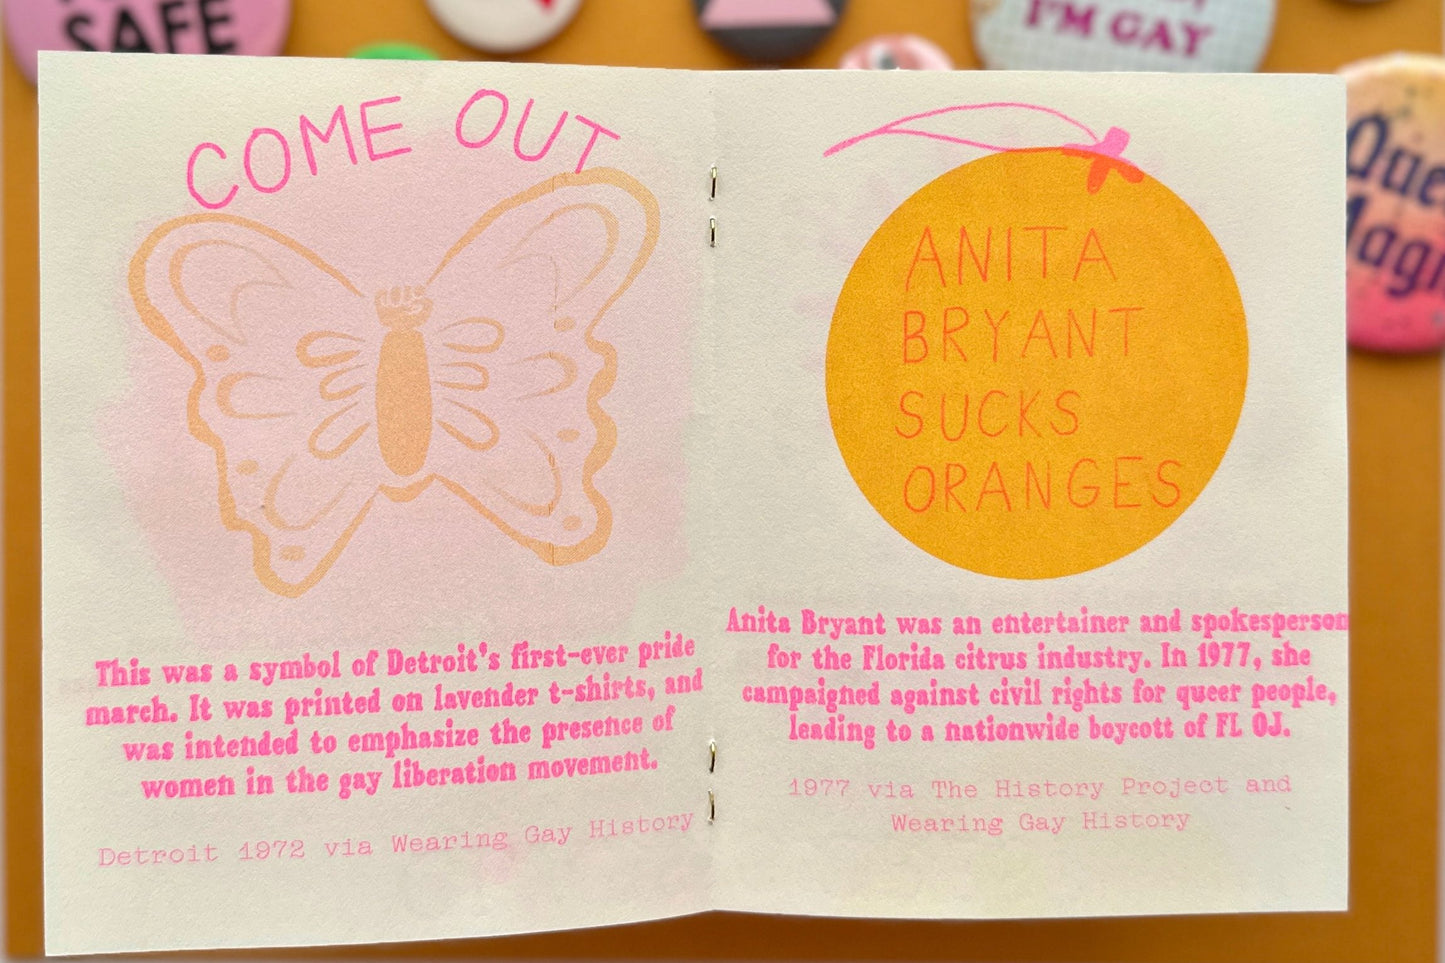 SAFE
I'M GAY
COME OUT
This was a symbol of Detroit's first-ever pride
march. It was printed on lavender t-shirts, and
was intended to emphasize the presence of
women in the gay liberation movement.
Detroit 1972 via Wearing Gay History
ANITA
BRYANT
SUCKS
ORANGES
Anita Bryant was an entertainer and spokesperson
for the Florida citrus industry. In 1977, she
campaigned against civil rights for queer people,
leading to a nationwide boycott of FL OJ.
1977 via The History Project and
Wearing Gay History